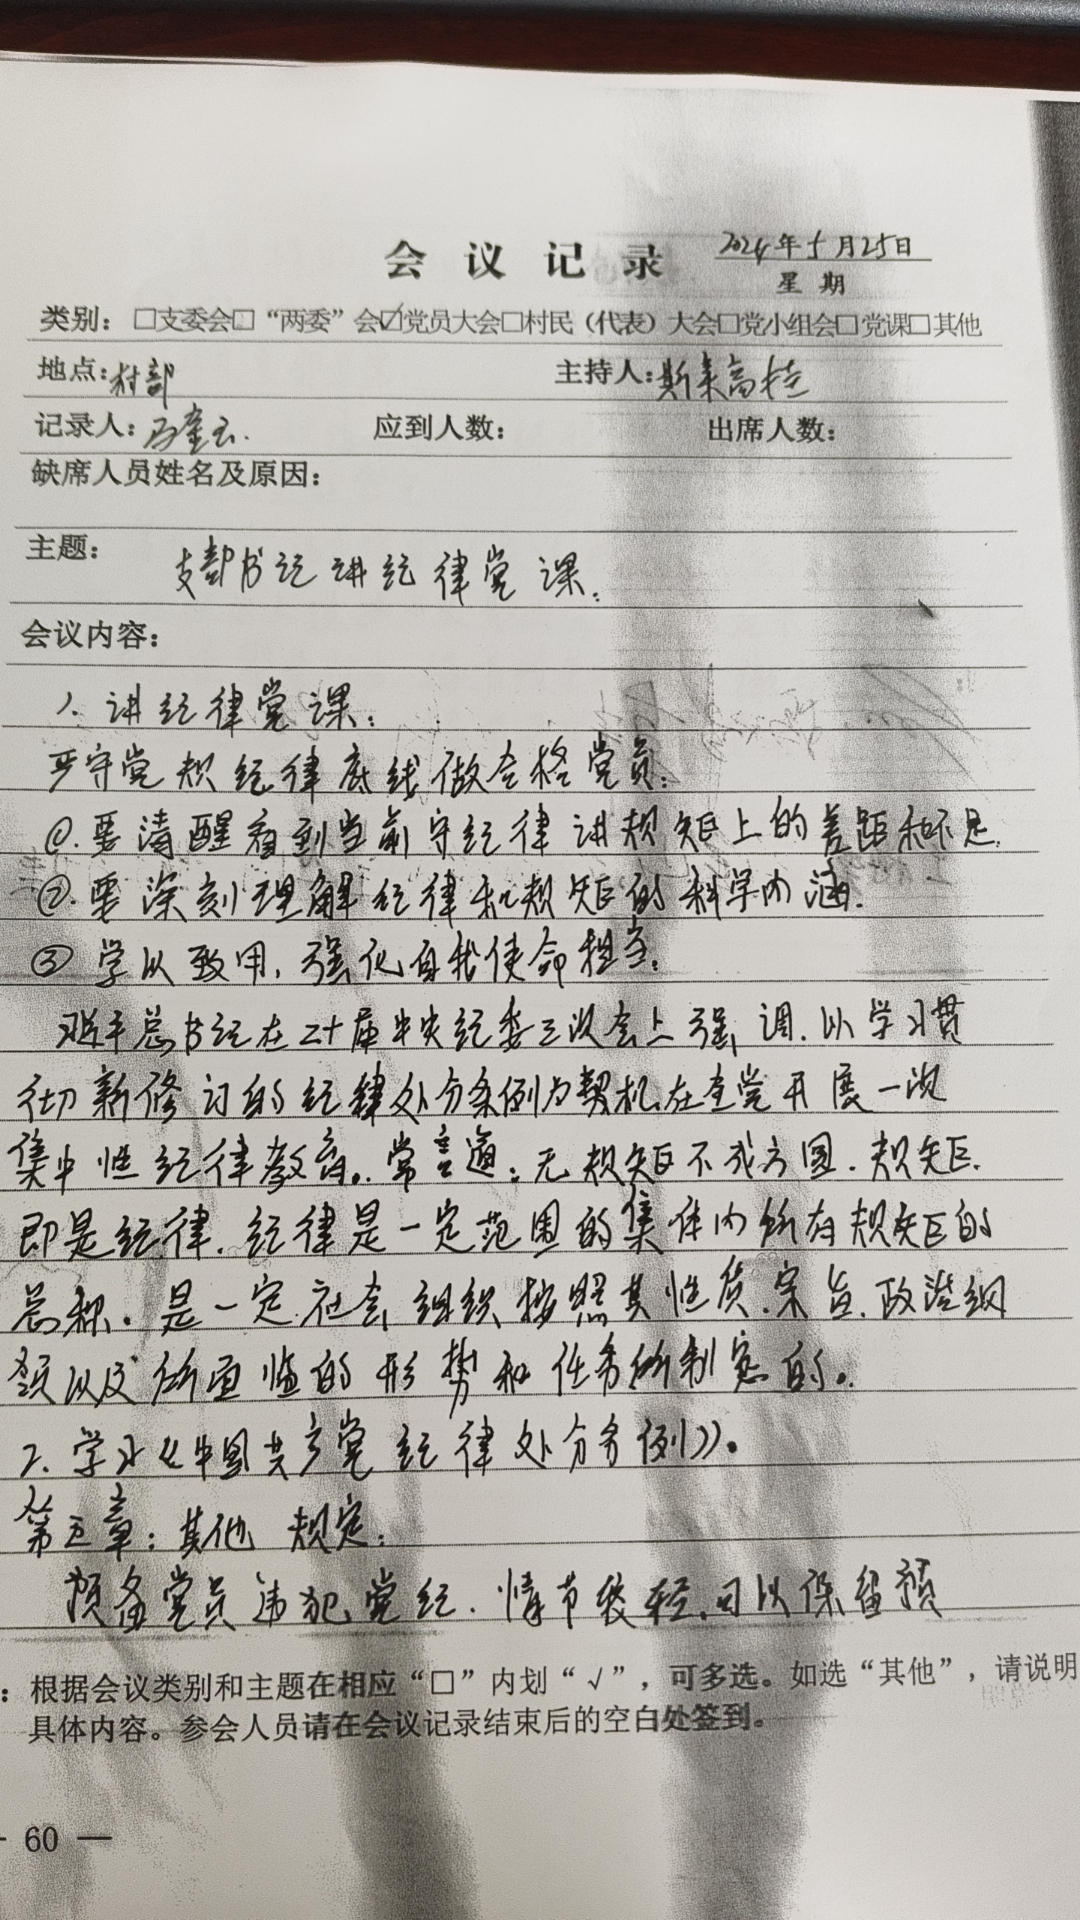 会议记录
2024年5月25日
星期
类别：□支委会□“两委”会☑党员大会□村民（代表）大会□党小组会□党课□其他
地点：村部 主持人：斯来高娃
记录人： 应到人数： 出席人数：
缺席人员姓名及原因：
主题： 支部书记讲纪律党课.
会议内容：
1. 讲纪律党课：
严守党规纪律底线做合格党员：
①.要清醒看到当前守纪律讲规矩上的差距和不足.
②.要深刻理解纪律和规矩的科学内涵.
③学以致用，强化自我使命担当.
习近平总书记在二十届中央纪委三次会上强调，以学习贯
彻新修订的纪律处分条例为契机在全党开展一次
集中性纪律教育。常言道：无规矩不成方圆.规矩.
即是纪律.纪律是一定范围的集体内所有规矩的
总称.是一定社会组织按照其性质.宗旨.政治纲
领以及所面临的形势和任务所制定的.
2.学习《中国共产党纪律处分条例》。
第五章：其他规定：
预备党员违犯党纪.情节较轻，可以保留预
：根据会议类别和主题在相应“□”内划“√”，可多选。如选“其他”，请说明
具体内容。参会人员请在会议记录结束后的空白处签到。
60 —